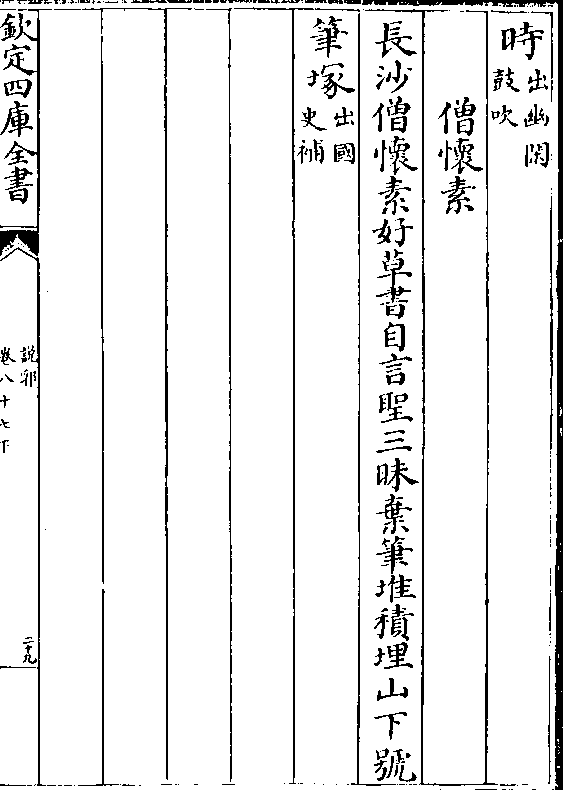 時出幽閑鼓吹
僧懷素
長沙僧懷素好草書自言聖三昧棄筆堆積埋山下號
筆塚出國史補
欽定四庫全書
說郛
卷八十七下
二十九